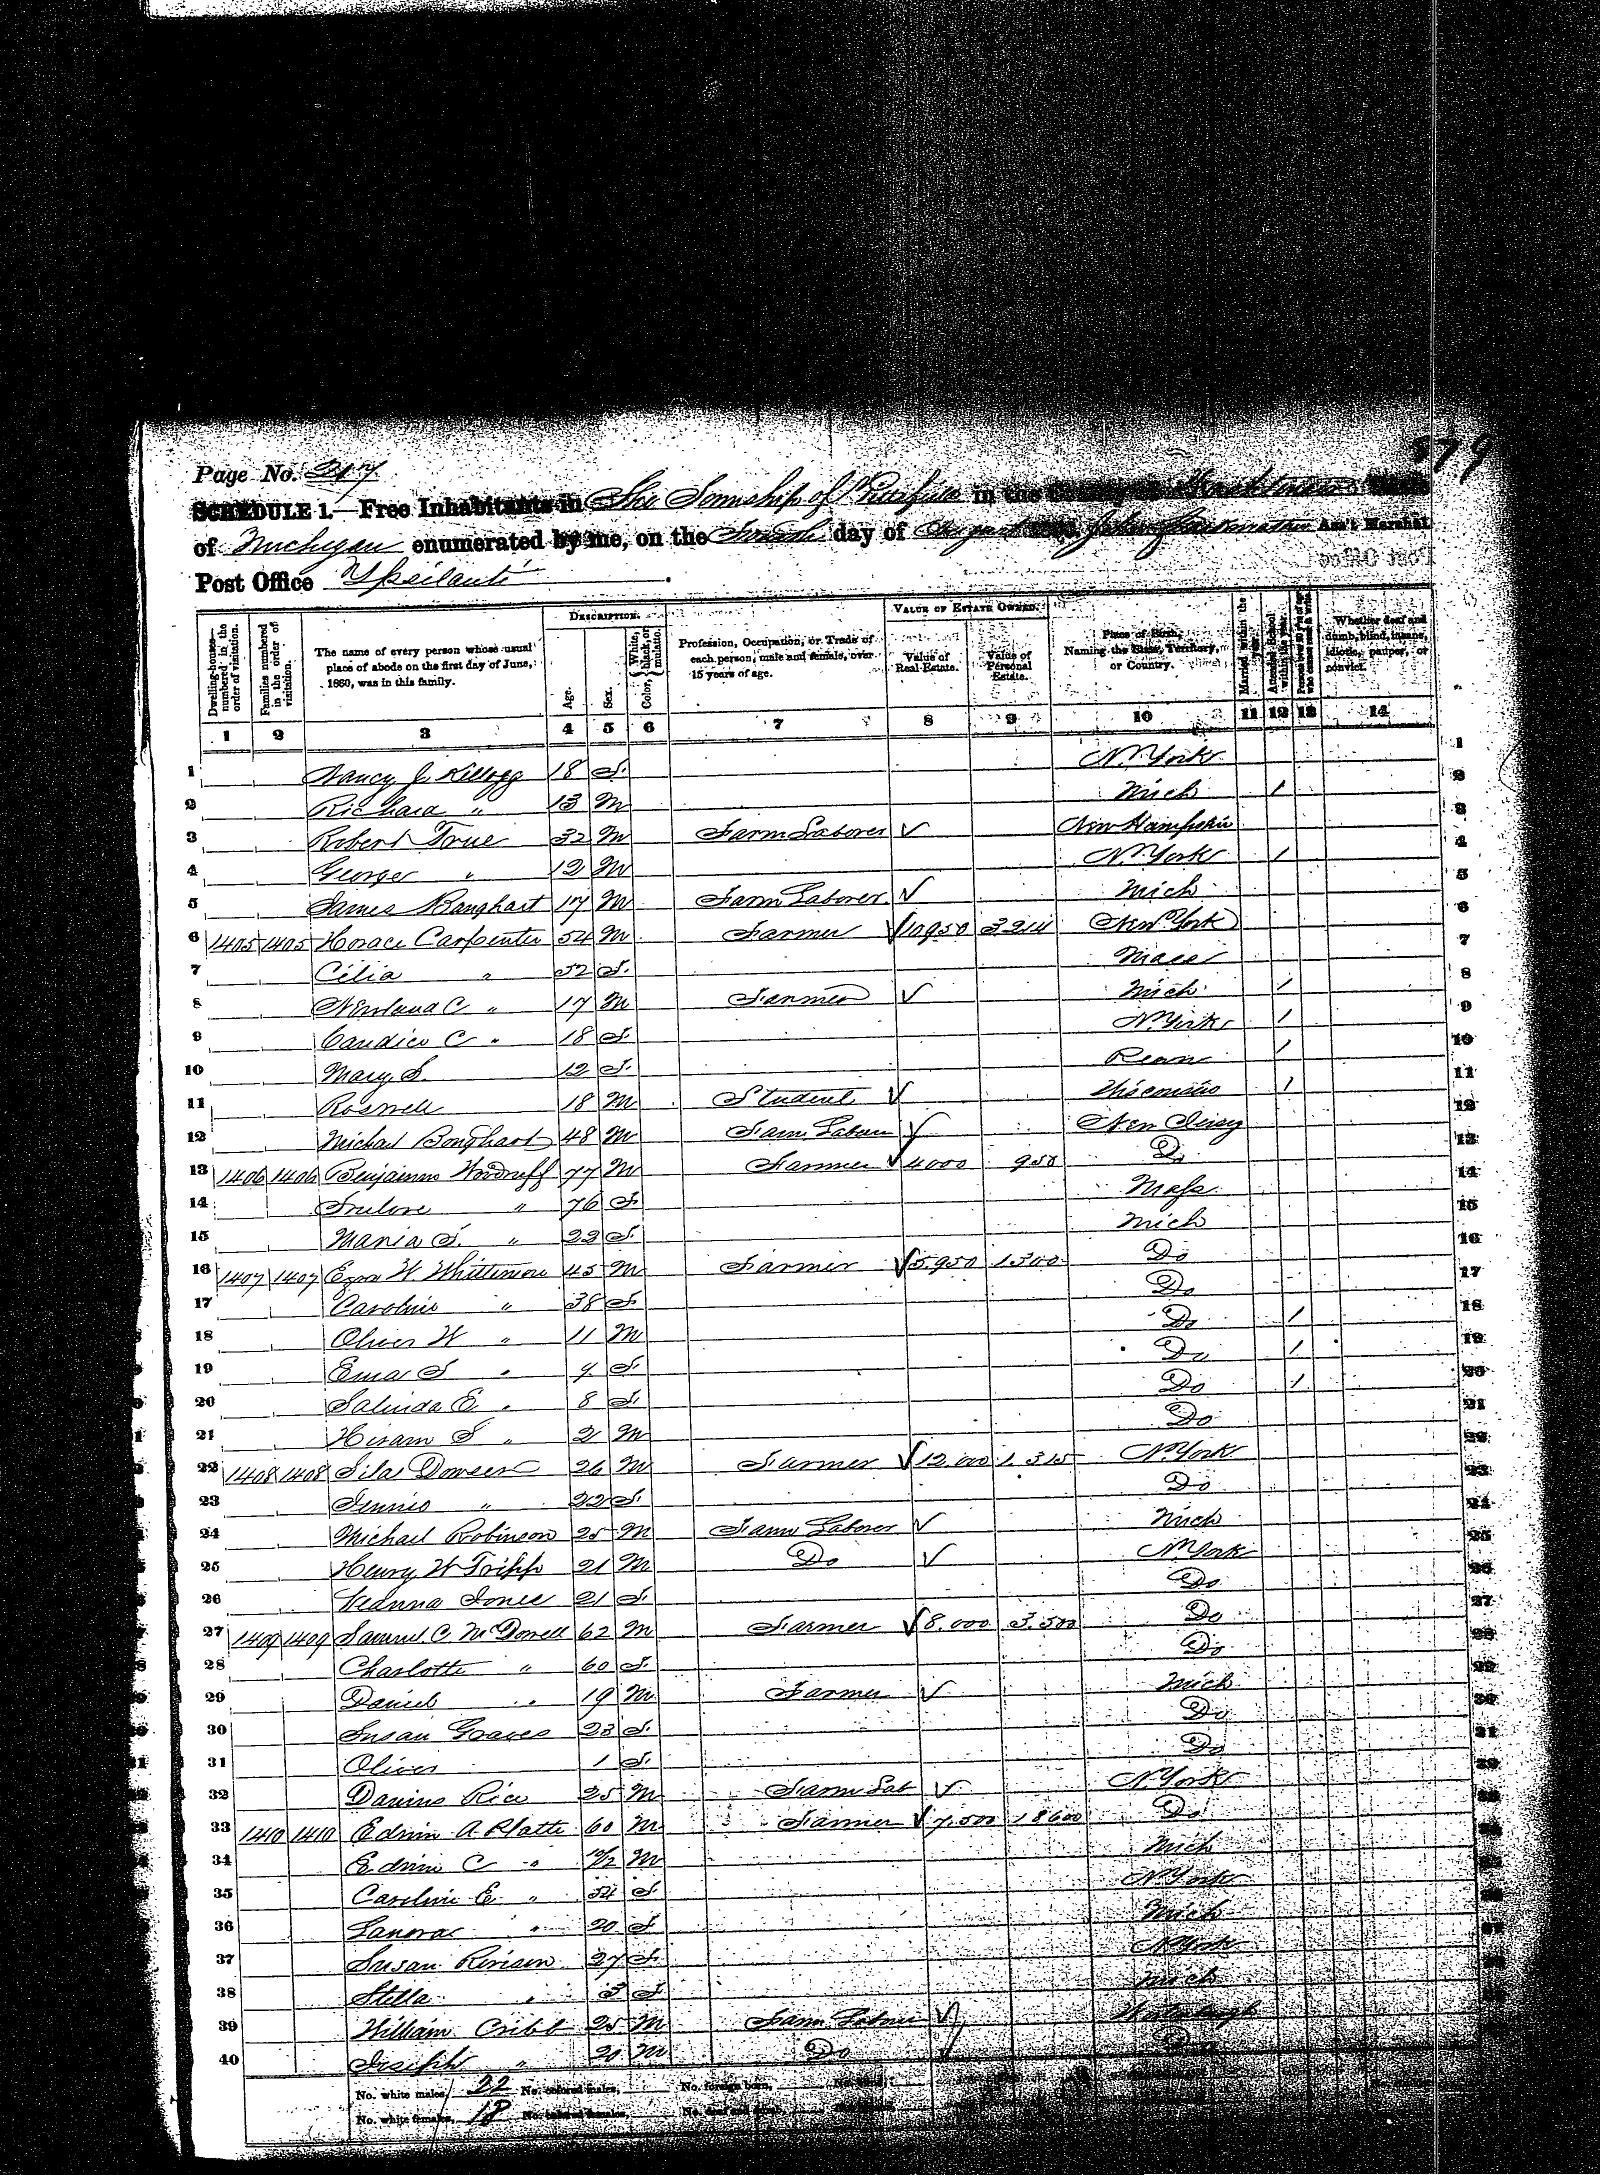 Page No. 217
SCHEDULE 1.—Free Inhabitants in The Township of Pittsfield in the County of Washtenaw State
of Michigan enumerated by me, on the day of August 1860. Ass't Marshal
Post Office Ypsilanti
Dwelling-houses—numbered in the order of visitation.
Families numbered in the order of visitation.
The name of every person whose usual place of abode on the first day of June, 1860, was in this family.
DESCRIPTION.
Age.
Sex.
Color, White, black, or mulatto.
Profession, Occupation, or Trade of each person, male and female, over 15 years of age.
VALUE OF ESTATE OWNED.
Value of Real Estate.
Value of Personal Estate.
Place of Birth, Naming the State, Territory, or Country.
Married within the year.
Attended School within the year.
Persons over 20 y'rs of age who cannot read & write.
Whether deaf and dumb, blind, insane, idiotic, pauper, or convict.
1 2 3 4 5 6 7 8 9 10 11 12 13 14
1 Nancy J. Kellogg 18 F. N. York 1
2 Richard " 13 M Mich 1 2
3 Robert True 32 M Farm Laborer ✓ New Hampshire 3
4 George " 12 M N. York 1 4
5 James Banghart 17 M Farm Laborer ✓ Mich 5
6 1405 1405 Horace Carpenter 54 M Farmer ✓ 10950 3214 New York 6
7 Celia " 52 F. Mass 7
8 C " 17 M Farmer ✓ Mich 1 8
9 Candice C " 18 F. N. York 1 9
10 Mary S. 12 F. Penn 1 10
11 Roswell 18 M Student ✓ Wisconsin 1 11
12 Michael Banghart 48 M Farm Labour ✓ New Jersey 12
13 1406 1406 Benjamin Woodruff 77 M Farmer ✓ 4000 950 Do 13
14 Freelove " 76 F. Mass. 14
15 Maria S. " 22 F. Mich 15
16 1407 1407 Ezra W Whittimore 45 M Farmer ✓ 5.950 1.300 Do 16
17 Caroline " 38 F. Do 17
18 Oliver W " 11 M Do 1 18
19 Ema S " 9 F. Do 1 19
20 Salinda E " 8 F. Do 1 20
21 Hiram S " 2 M Do 21
22 1408 1408 Silas 26 M Farmer ✓ 12.000 1.315 N. York 22
23 Jennie " 22 F. Do 23
24 Michael Robinson 25 M Farm Laborer ✓ Mich 24
25 Henry W Tripp 21 M Do ✓ N. York 25
26 Jones 21 F. Do 26
27 1409 1409 Samuel C. McDowell 62 M Farmer ✓ 8.000 3.500 Do 27
28 Charlotte " 60 F. Do 28
29 Daniel " 19 M Farmer ✓ Mich 29
30 Susan Graves 23 F. Do 30
31 Olive 1 F. Do 31
32 Darius Rice 25 M Farm Lab ✓ N. York 32
33 1410 1410 Edwin A Platte 60 M Farmer ✓ 7.500 18600 Do
34 Edwin C " M Mich
35 Caroline E " 54 F N. York
36 Lanora " 20 F Mich
37 Susan 27 F. N. York
38 Stella " 3 F Mich
39 William Cribb 25 M Farm Labour ✓
40 Joseph " 20 M Do ✓ Do
No. white males, 22 No. colored males, No. foreign born,
No. white females, 18 No. colored females,